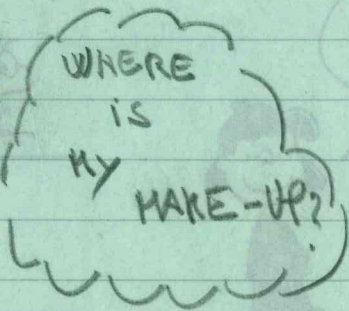 WHERE
is
MY
MAKE-UP?